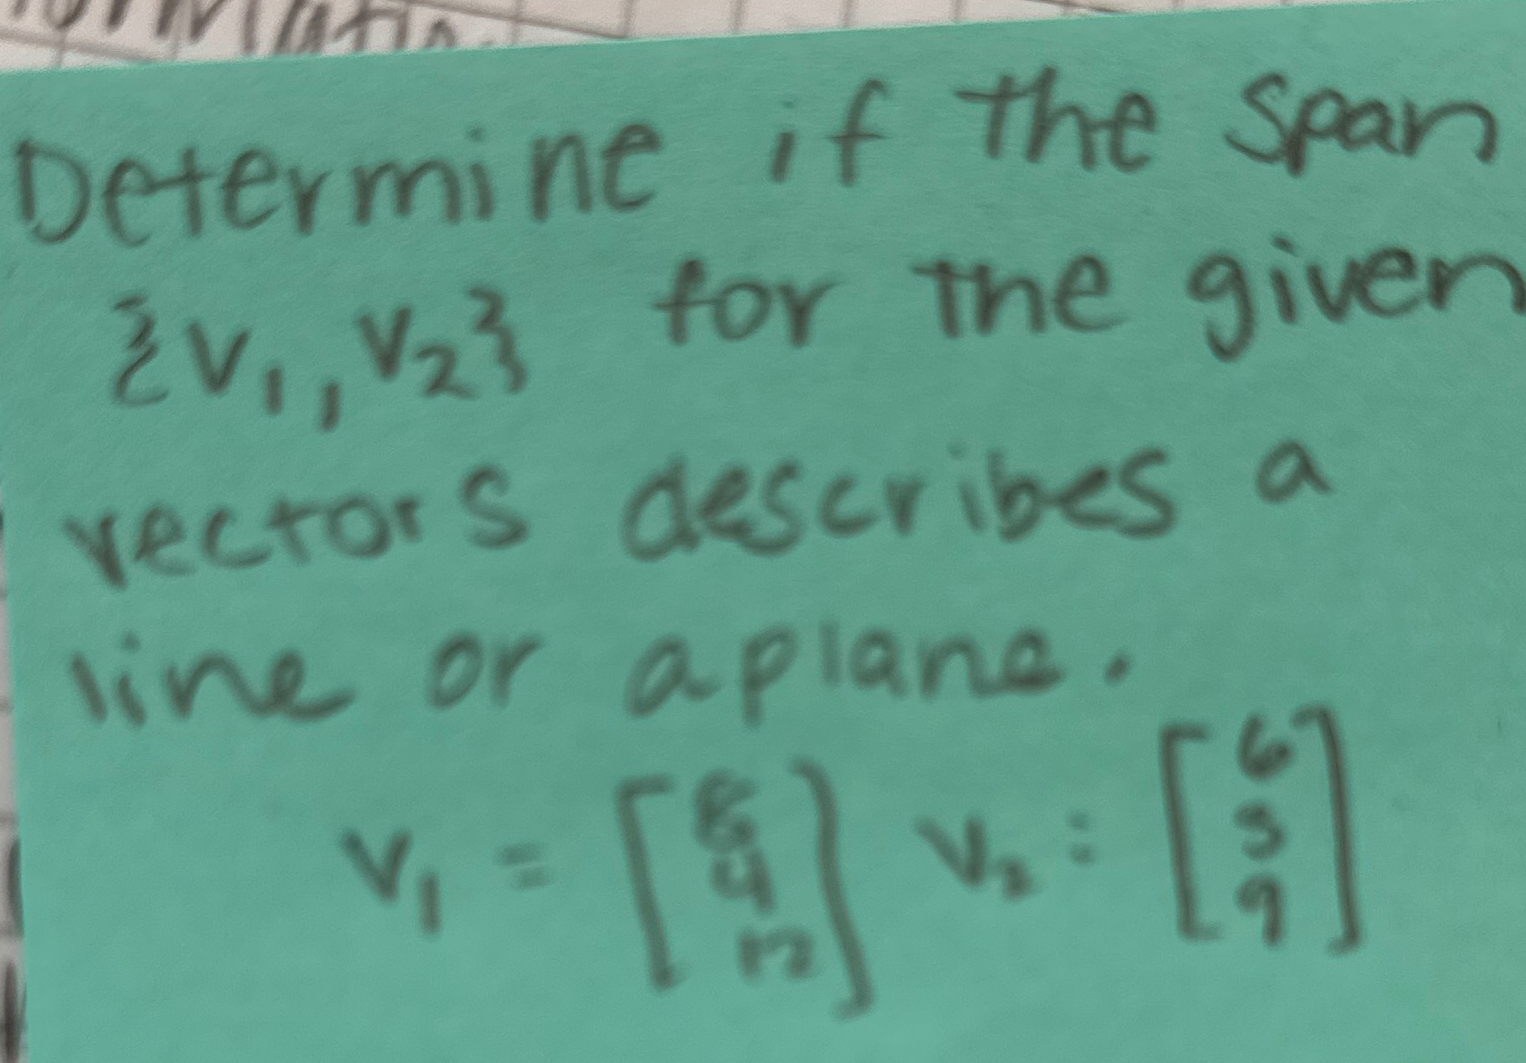 Determine if the span
{v₁, v₂} for the given
vectors describes a
line or a plane.
v₁ = [ 4 12 ] v₂ = [ 6 9 ]